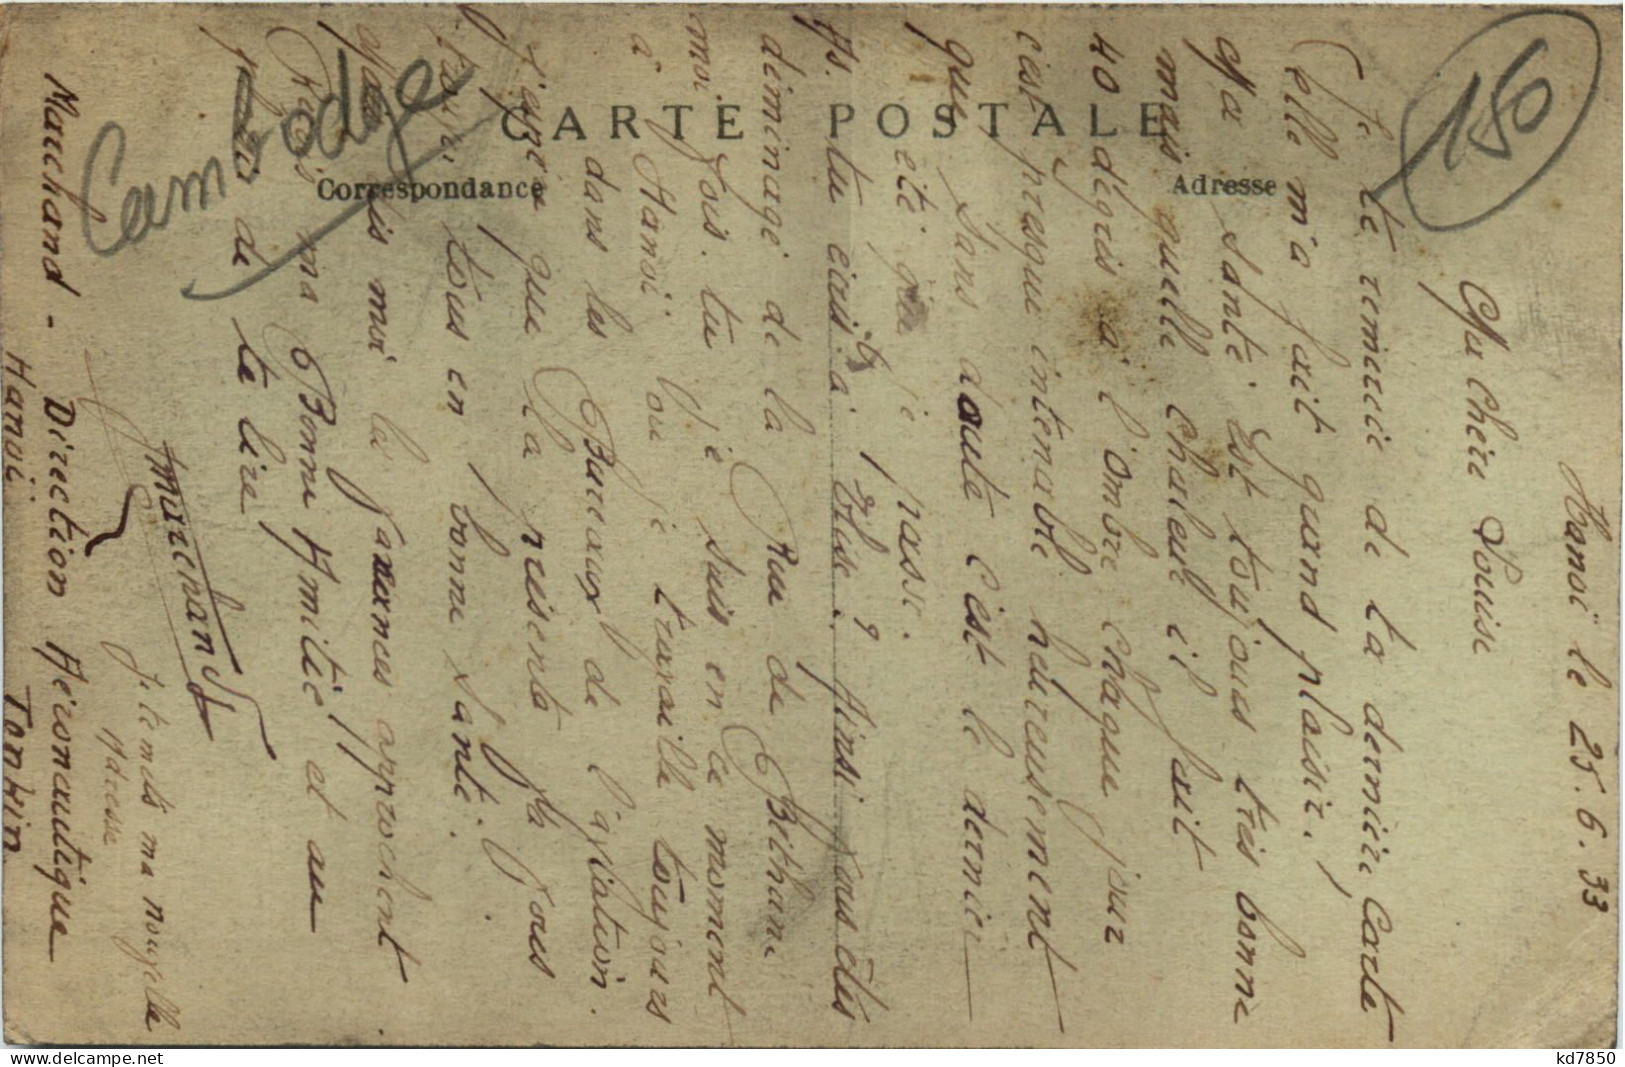 CARTE POSTALE
Correspondance
Adresse
Cambodge
150
Hanoi le 25.6.33
Ma chère Louise
Je te remercie de ta dernière Carte
Celle m'a fait grand plaisir.
Ma Santé est toujours très bonne
mais quelle chaleur il fait
40 dégrés à l'ombre chaque jour
c'est presque intenable heureusement
que Sans doute C'est le dernier
été que je passe.
As. tu écris à Elise? Ainsi vous êtes
déminagé de la Rue de Béthune
moi. fois. tu je suis en ce moment
à Hanoi ou je travaille toujours
dans les Bureaux de l'aviation.
J'espère que la présente Va Vous
trouver tous en bonne Santé.
mois les Vacances approchent.
Reçois ma Bonne Amitié et au
plaisir de te lire
Marchand
Je te mets ma nouvelle
Adresse
Marchand - Direction Aéronautique
Hanoï Tonkin
kd7850